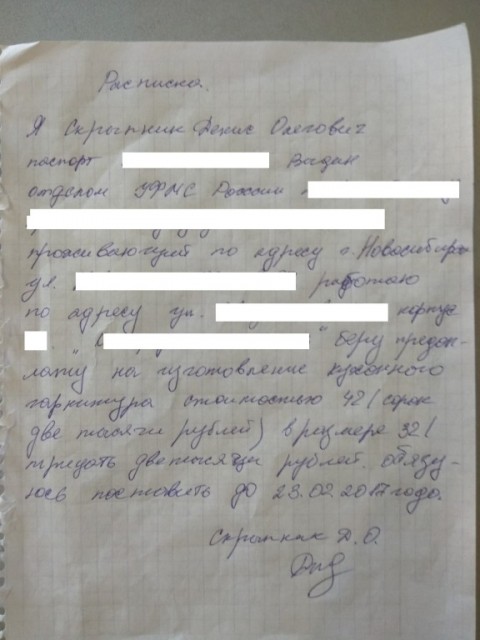 Расписка.
Я Скрыпник Денис Олегович
паспорт Выдан
отделом УФМС России
проживающий по адресу г. Новосибирск
ул. работаю
по адресу ул. корпус
" " беру предоп-
лату на изготовление кухонного
гарнитура стоимостью 42/сорок
две тысячи рублей) в размере 32/
тридать две тысячи рублей. обязу-
юсь поставить до 23.02.2017 года.
Скрыпник Д.О.